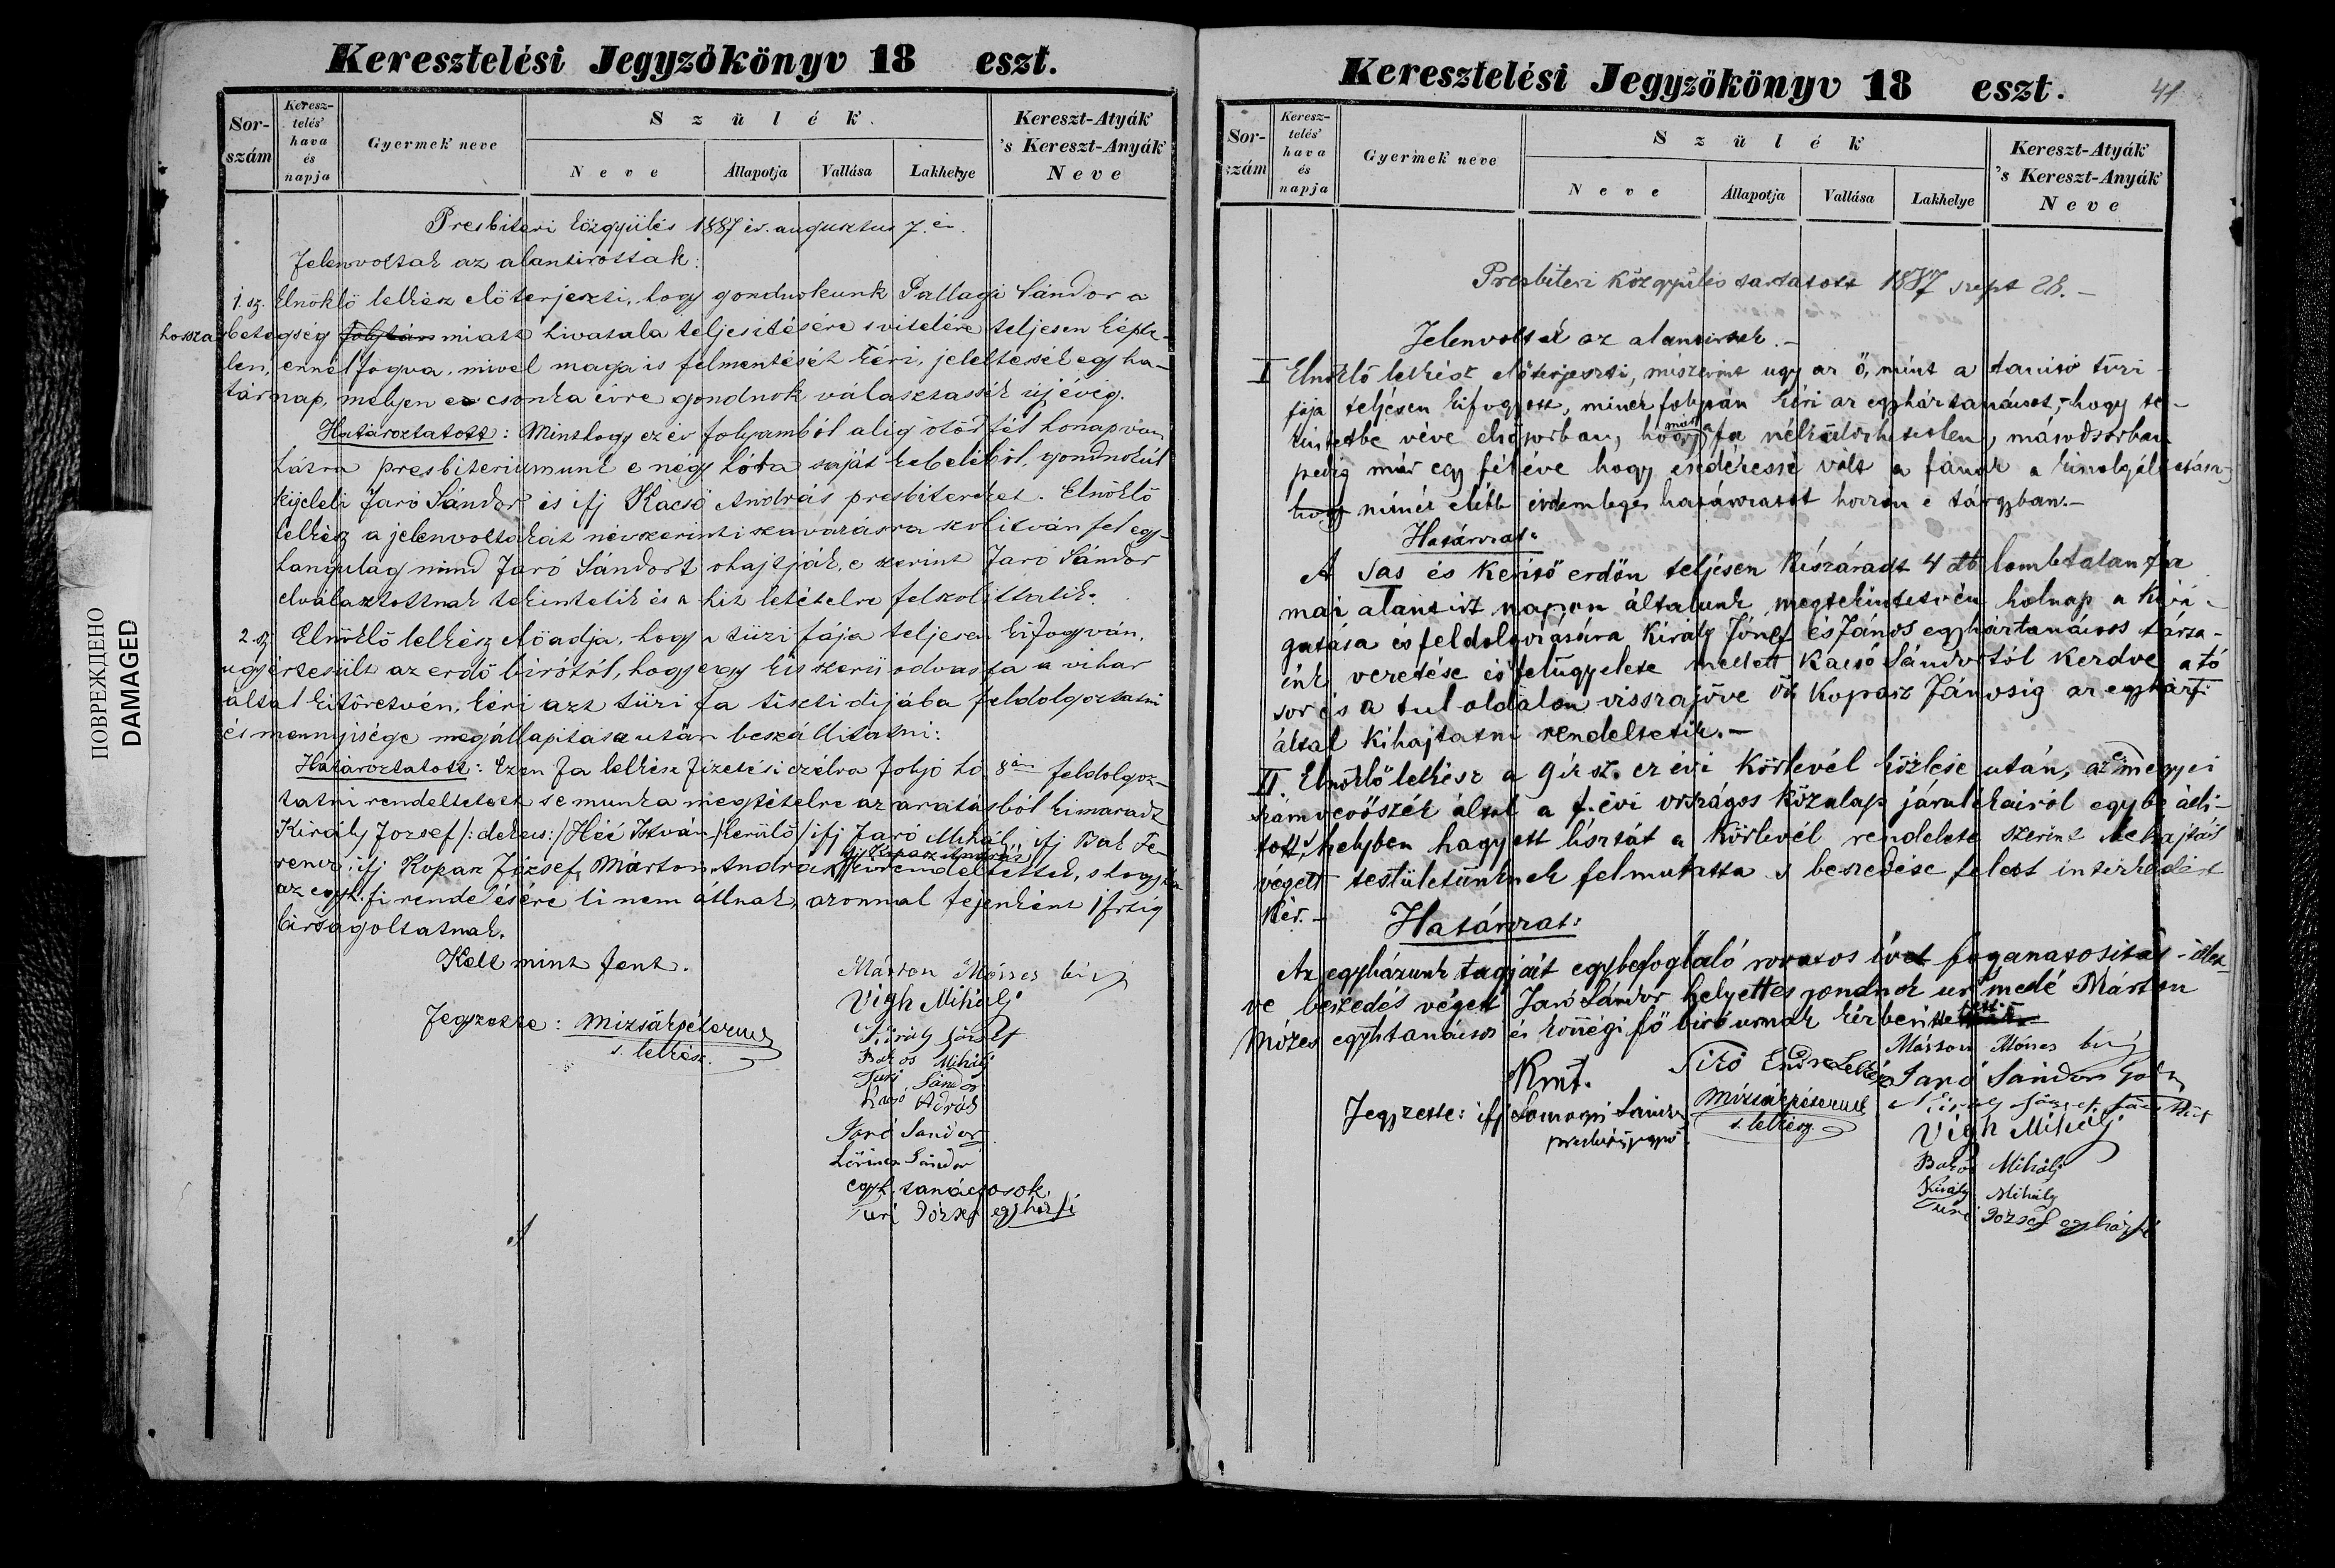 Keresztelési Jegyzökönyv 18 eszt.
Sor-szám
Keresz-telés' hava és napja
Gyermek neve
Szülék.
Neve
Állapotja
Vallása
Lakhelye
Kereszt-Atyák 's Kereszt-Anyák Neve
Presbiteri közgyülés 1887 év. augusztus 7. én.
Jelenvoltak az alantirottak:
1. sz. Elnöklő lelkész előterjeszti, hogy gondnokunk Pallagi Sándor a
hossza betegség folytán miatt hivatala teljesitésére s vitelére teljesen képte-
len, ennélfogva, mivel maga is felmentését kéri, jeleltessék egy ha-
tárnap, melyen e csonka évre gondnok választassék uj évig.
Határoztatott: Minthogy ez év folyamból alig ötöd fél honap van
hátra presbiteriumunk e négy hóra saját kebeléből, gondnokúl
kijeleli Jaró Sándor és ifj Kacsó András presbitereket. Elnöklő
lelkész a jelenvoltakat névszerinti szavazásra szolitván fel egy-
hangulag mind Jaró Sándort ohajtják, e szerint Jaró Sándor
elválasztottnak tekintetik és a hit letételre felszolittatik.
2. sz. Elnöklő lelkész előadja, hogy a tüzi fája teljesen kifogyván,
ugy értesült az erdő birótól, hogy egy kis szerü odvas fa a vihar
által kitöretvén, kéri azt tüzi fa tiszti dijába feldolgoztatni
és mennyisége megállapitása után beszállitatni:
Határoztatott: Ezen fa lelkész fizetési czélra folyó hó 8án feldolgoz-
tatni rendeltetvék se munka megtételre az aratásból kimaradt
Király Jozsef /:dekus:/ Héé István /kerülő/ ifj Jaró Mihály, ifj Bak Fe-
ifj Kopasz András
rencz, ifj Kopasz József, Márton András kirendeltettek, s hogy ha
az egyh. fi rendelésére ki nem állnak, azonnal fejenként 1 frtig
birságoltatnak.
Kelt mint fent.
Jegyzette: Mizsák Péter
s. lelkész.
Márton Mózes biró
Vigh Mihály
Király József
Bakos Mihály
Turi Sándor
Kacsó Adrás
Jaró Sandor
Lőrincz Sándor
egyh. tanácsosok.
Turi József egyházfi
Keresztelési Jegyzökönyv 18 eszt.
41
Sor-szám
Keresz-telés' hava és napja
Gyermek neve
Szülék
Neve
Állapotja
Vallása
Lakhelye
Kereszt-Atyák 's Kereszt-Anyák Neve
Presbiteri Közgyülés tartatott 1887 szept 28.-
Jelenvoltak az alantirtak.-
I Elnöklő lelkész előterjeszti, miszerint ugy az ő, mint a tanitó tüzi-
fája teljesen kifogyott, minek folytán kéri az egyháztanácsot, hogy te-
kintetbe véve elsősorban, hogy már a fa nélkülözhetetlen, másodsorban
pedig már egy féléve hogy esedékessé vált a fának a kiszolgáltatása,
hogy minél előbb érdemleges határozatot hozzon e tárgyban.-
Határozat:
A Sas és Kerítő erdőn teljesen kiszáradt 4 db lombtalan fa
mai alantirt napon általunk megtekintetvén holnap a kivá-
gatása és feldolgozására Király József és János egyháztanácsos társa-
ink vezetése és felügyelete mellett Kacsó Sándortól kezdve a tó
sor és a tul oldalon visszajöve ök Kopasz Jánosig az egyházfi
által kihajtatni rendeltetik.-
II. Elnöklő lelkész a 9 ik sz. ez évi körlevél közlése után, az e.megyei
számvevőszék által a f. évi országos közalap járulékairól egybe álli-
tott, helyben hagyott lisztát a körlevél rendelete szerint behajtás
végett testületünknek felmutatta s beszedése felett intézkedést
kér.-
Határozat:
Az egyházunk tagjait egybefoglaló rovatos ívet foganatositás - illet-
ve beszedés végett Jaró Sándor helyettes gondnok ur medé Márton
Mózes egyhtanácsos és községi fő biró urnak kézbesittetett
Kmt.
Jegyzette: ifj Somogyi Sándor
presbiteri jegyző
Szító Endre Lelkész
Mizsák Péter
s. lelkész.
Márton Mózes biró
Jaró Sándor Gond
Király József
Vigh Mihály
Bakos Mihály
Király Mihály
Turi József egyházfi
ПОВРЕЖДЕНО
DAMAGED